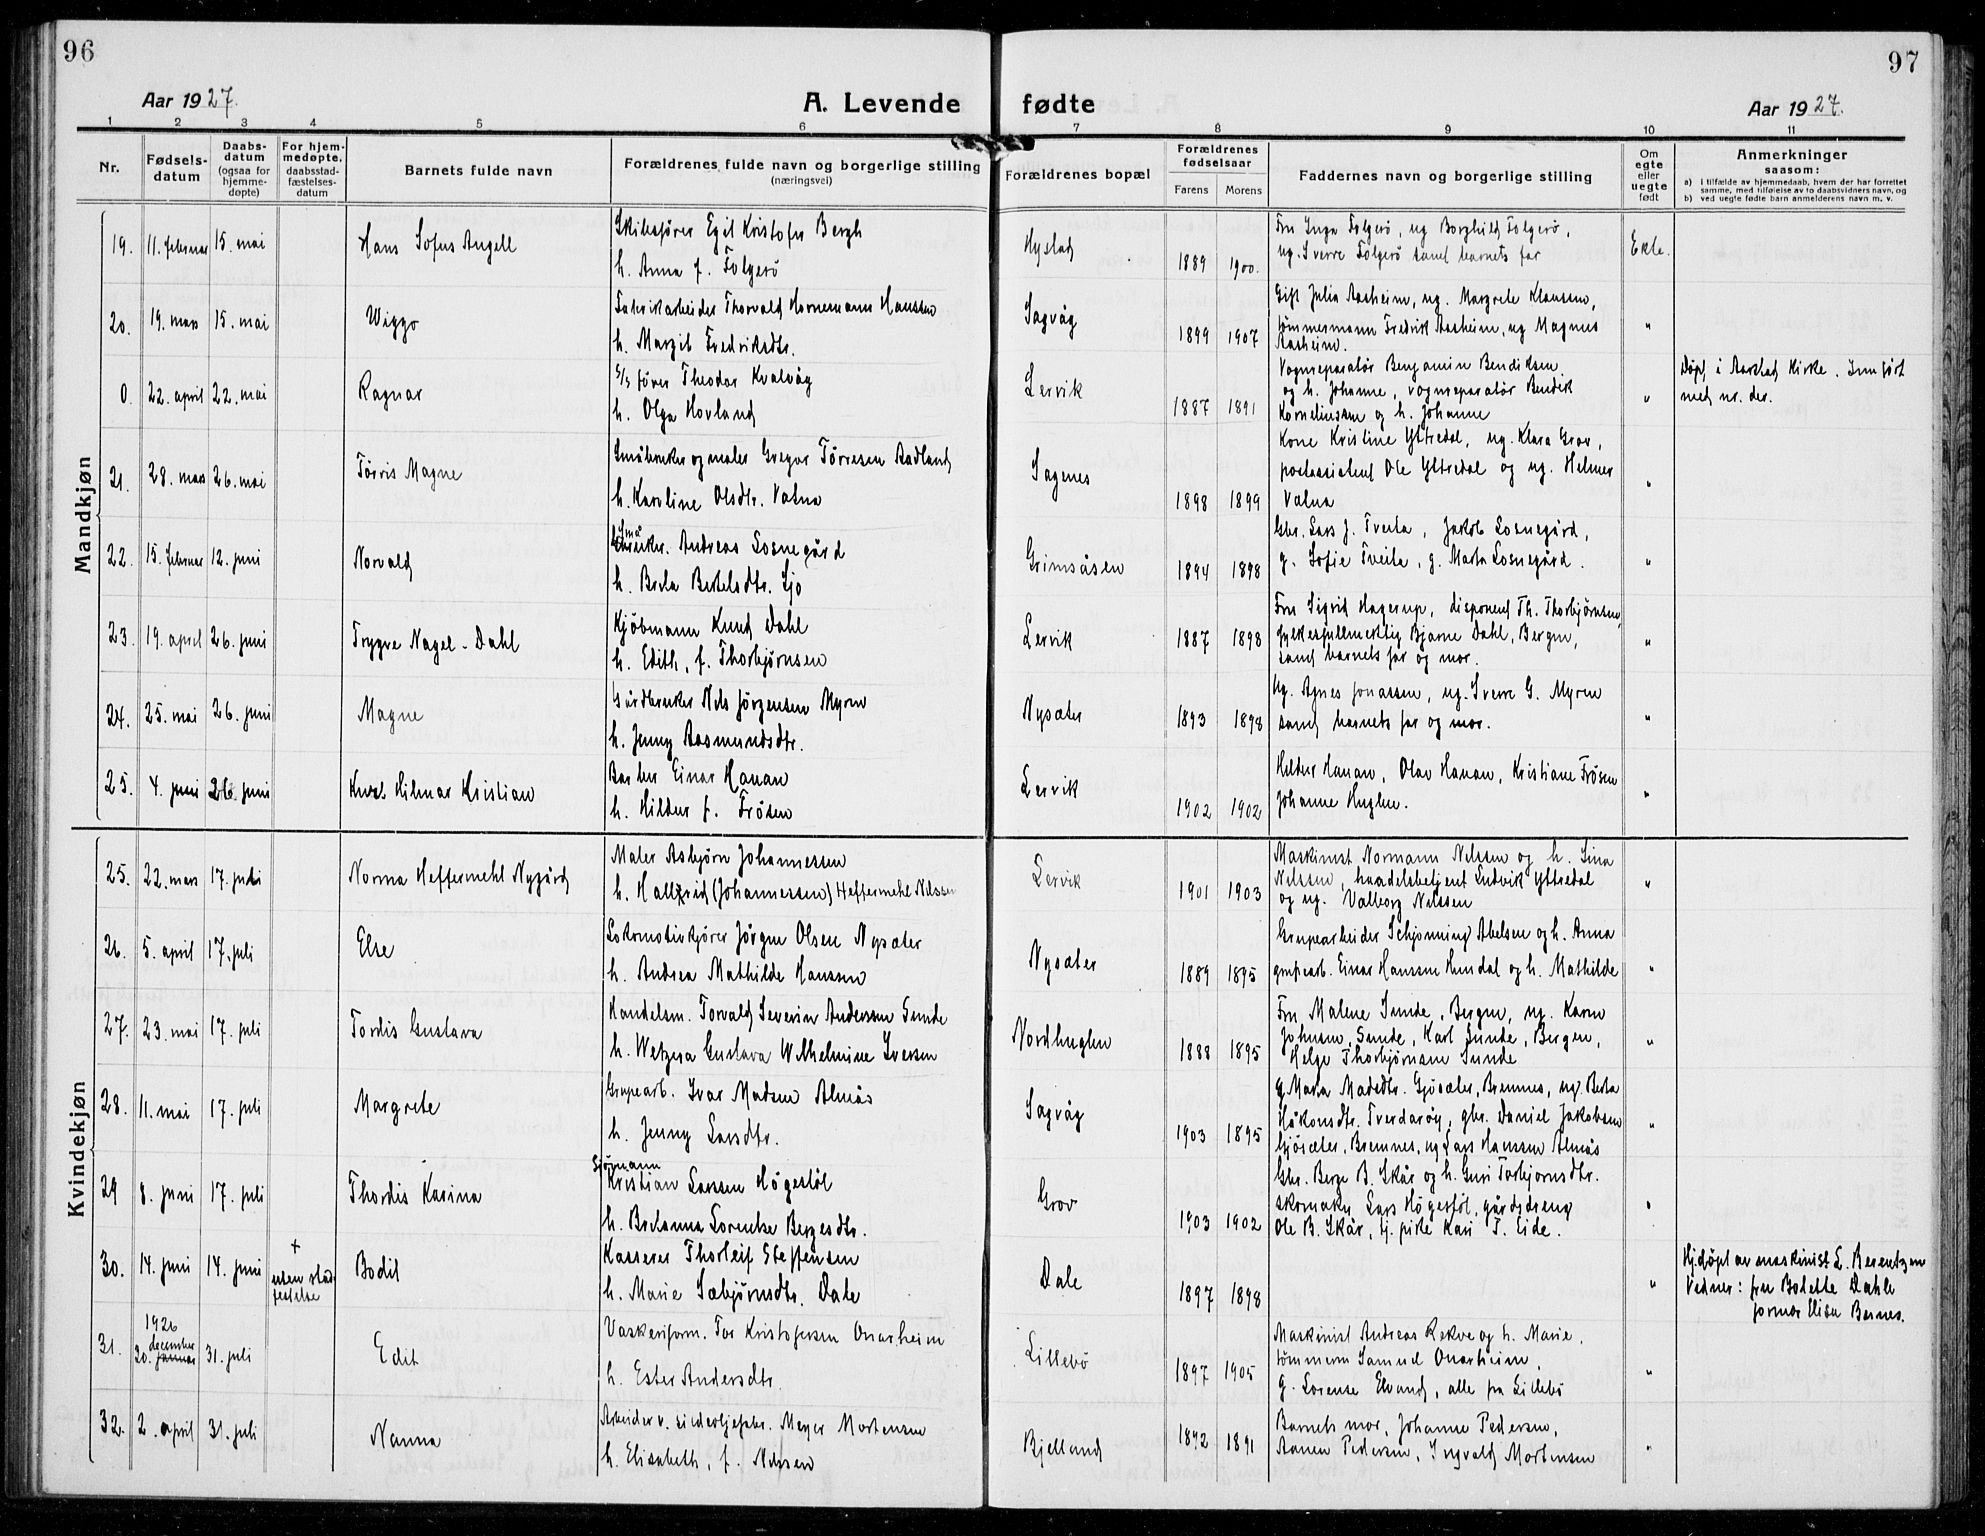 96
97
Aar 1927.
A. Levende fødte
Aar 1927.
1 2 3 4 5 6 7 8 9 10 11
Nr.
Fødsels-
datum
Daabs-
datum
(ogsaa for
hjemme-
døpte)
For hjem-
medøpte,
daabsstad-
fæstelses-
datum
Barnets fulde navn
Forældrenes fulde navn og borgerlige stilling
(næringsvei)
Forældrenes bopæl
Forældrenes
fødselsaar
Farens Morens
Faddernes navn og borgerlige stilling
Om
egte
eller
uegte
født
Anmerkninger
saasom:
a) I tilfælde av hjemmedaab, hvem der har forrettet
samme, med tilføielse av to daabsvidners navn, og
b) ved uegte fødte barn anmelderens navn m. v.
Mandkjøn
19. 11. februar 15. mai Hans Sofus Angell
Skibsfører Egil Kristofer Bergh
h. Anna f. Folgerø
Hystad 1889 1900.
Fru Inga Folgerø, ug Borghild Folgerø,
ug. Sverre Folgerø samt barnets far
Ekte.
20. 19. mars 15. mai Wiggo
Fabrikarbeider Thorvald Hornemann Hanssen
h. Margit Fredriksdtr.
Sagvåg 1899 1907
Gift Julia Aasheim, ug. Margrete Klaussen,
tømmermann Fredrik Aasheim, ug Magnus
Aasheim.
"
0. 22. april 22. mai Ragnar
S/S fører Theodor Kvalvåg
h. Olga Hovland
Lervik 1887 1891
Vognreparatør Benjamin Bendiksen
og h. Johanne, vognreparatør Bendik
Korneliussen og h. Johanne
"
Døpt i Aarstad Kirke. Innført
med nr. der.
21. 28. mars 26. mai Torvis Magne
Småbruker og maler Gregor Tørresen Aadland
h. Karoline Olsdtr. Vatna
Sagenes 1898 1899
Kone Kristine Yttredal, ug. Klara Grov,
postassistent Ole Yttredal og ug. Helmer
Vatna
"
22. 15. februar 12. juni Norvald
Småbruker. Andreas Losnegård
h. Berta Bertelsdtr. Sjo
Grimsåsen 1894 1898
Gbr. Lars J. Tveita, Jakob Losnegård,
g. Sofie Tveita, g. Marta Losnegård.
"
23. 19. april 26. juni Trygve Nagel-Dahl
Kjøbmann Knud Dahl
h. Edith, f. Thorbjørnsen
Lervik 1887 1898
Fru Sigrid Hagerup, disponent Th. Thorbjørnsen,
fylkesfullmektig Bjarne Dahl, Bergen,
samt barnets far og mor.
"
24. 25. mai 26. juni Magne
Gårdbruker Nils Jørgensen Myren
h. Jenny Aasmundsdtr.
Nysæter 1893 1898
Ug. Agnes Jonassen, ug. Sverre G. Myren
samt barnets far og mor.
"
25. 4. juni 26. juni Hilmar Kristian
Einar Hanan
h. Hildur f. Frøsen
Lervik 1902 1902
Hildur Hanan, Olav Hanan, Kristiane Frøsen
Johanne Huglen.
"
Kvindekjøn
25. 22. mars 17. juli Norma Heffermehl Nygård
Maler Asbjørn Johannessen
h. Hallfrid (Johannessen) Heffermehl Nilssen
Lervik 1901 1903
Maskinist Normann Nilssen og h. Lina
Nilssen, handelsbetjent Ludvik Yttredal
og ug. Valborg Nilssen
"
26. 5. april 17. juli Else
Lokomotivkjører Jørgen Olsen Nysæter
h. Andrea Mathilde Hanssen
Nysæter 1889 1895
Grupearbeider Schjønning Abelsen og h. Anna
grupearb. Einar Hanssen Hundal og h. Mathilde
"
27. 23. mai 17. juli Tordis Gustava
Handelsm. Torvald Severin Andersen Sunde
h. Gustava Wilhelmine Iversen
Nordhuglen 1888 1895
Fru Malene Sunde, Bergen, ug. Karen
Johnsen, Sunde, Karl Sunde, Bergen,
Helge Thorbjørnsen Sunde
"
28. 11. mai 17. juli Margrete
Grupearb. Ivar Madsen Almås
h. Jenny Larsdtr.
Sagvåg 1903 1895
g. Maria Madsdtr. Gjøsæter, Bremnes, ug. Berta
Håkonsdtr. Tverdarøy, gbr. Daniel Jakobsen
Gjøsæter, Bremnes, ug Lars Hanssen Almås
"
29 8. juni 17. juli Thordis Karina
Sjømann
Kristian Larssen Høgestøl
h. Britanna Lorentse Bergesdtr.
Grov 1903 1902
Gbr. Berge B. Skår og h. Guri Torbjørnsdtr.
skomaker Lars Høgestøl, gårdsdreng
Ole B. Skår, tj. pike Kari T. Eide.
"
30. 14. juni 14. juni
+
uten stad-
festelse
Bodil
Kasserer Thorleif Steffensen
h. Marie Sæbjørnsdtr. Dale
Dale 1897 1898
"
Hj.døpt av maskinist L. Berentzen
Vidner: fru Bodette Dahle
jormor Elisa Bernes.
31.
1926
december
30. januar
31. juli Edit
Vaskeriform. Tor Kristofersen Onarheim
h. Ester Andersdtr.
Lillebø 1897 1905
Maskinist Andreas Rekve og h. Marie,
tømmerm Samuel Onarheim,
g. Lorense Elvand, alle fra Lillebø
"
32. 2. april 31. juli Nanna
Arbeider v. sildoljefabr. Meyer Mortensen
h. Elisabeth, f. Nilsen
Bjelland 1892 1891
Barnets mor, Johanne Pedersen,
Aanen Pedersen, Ingvald Mortensen
"